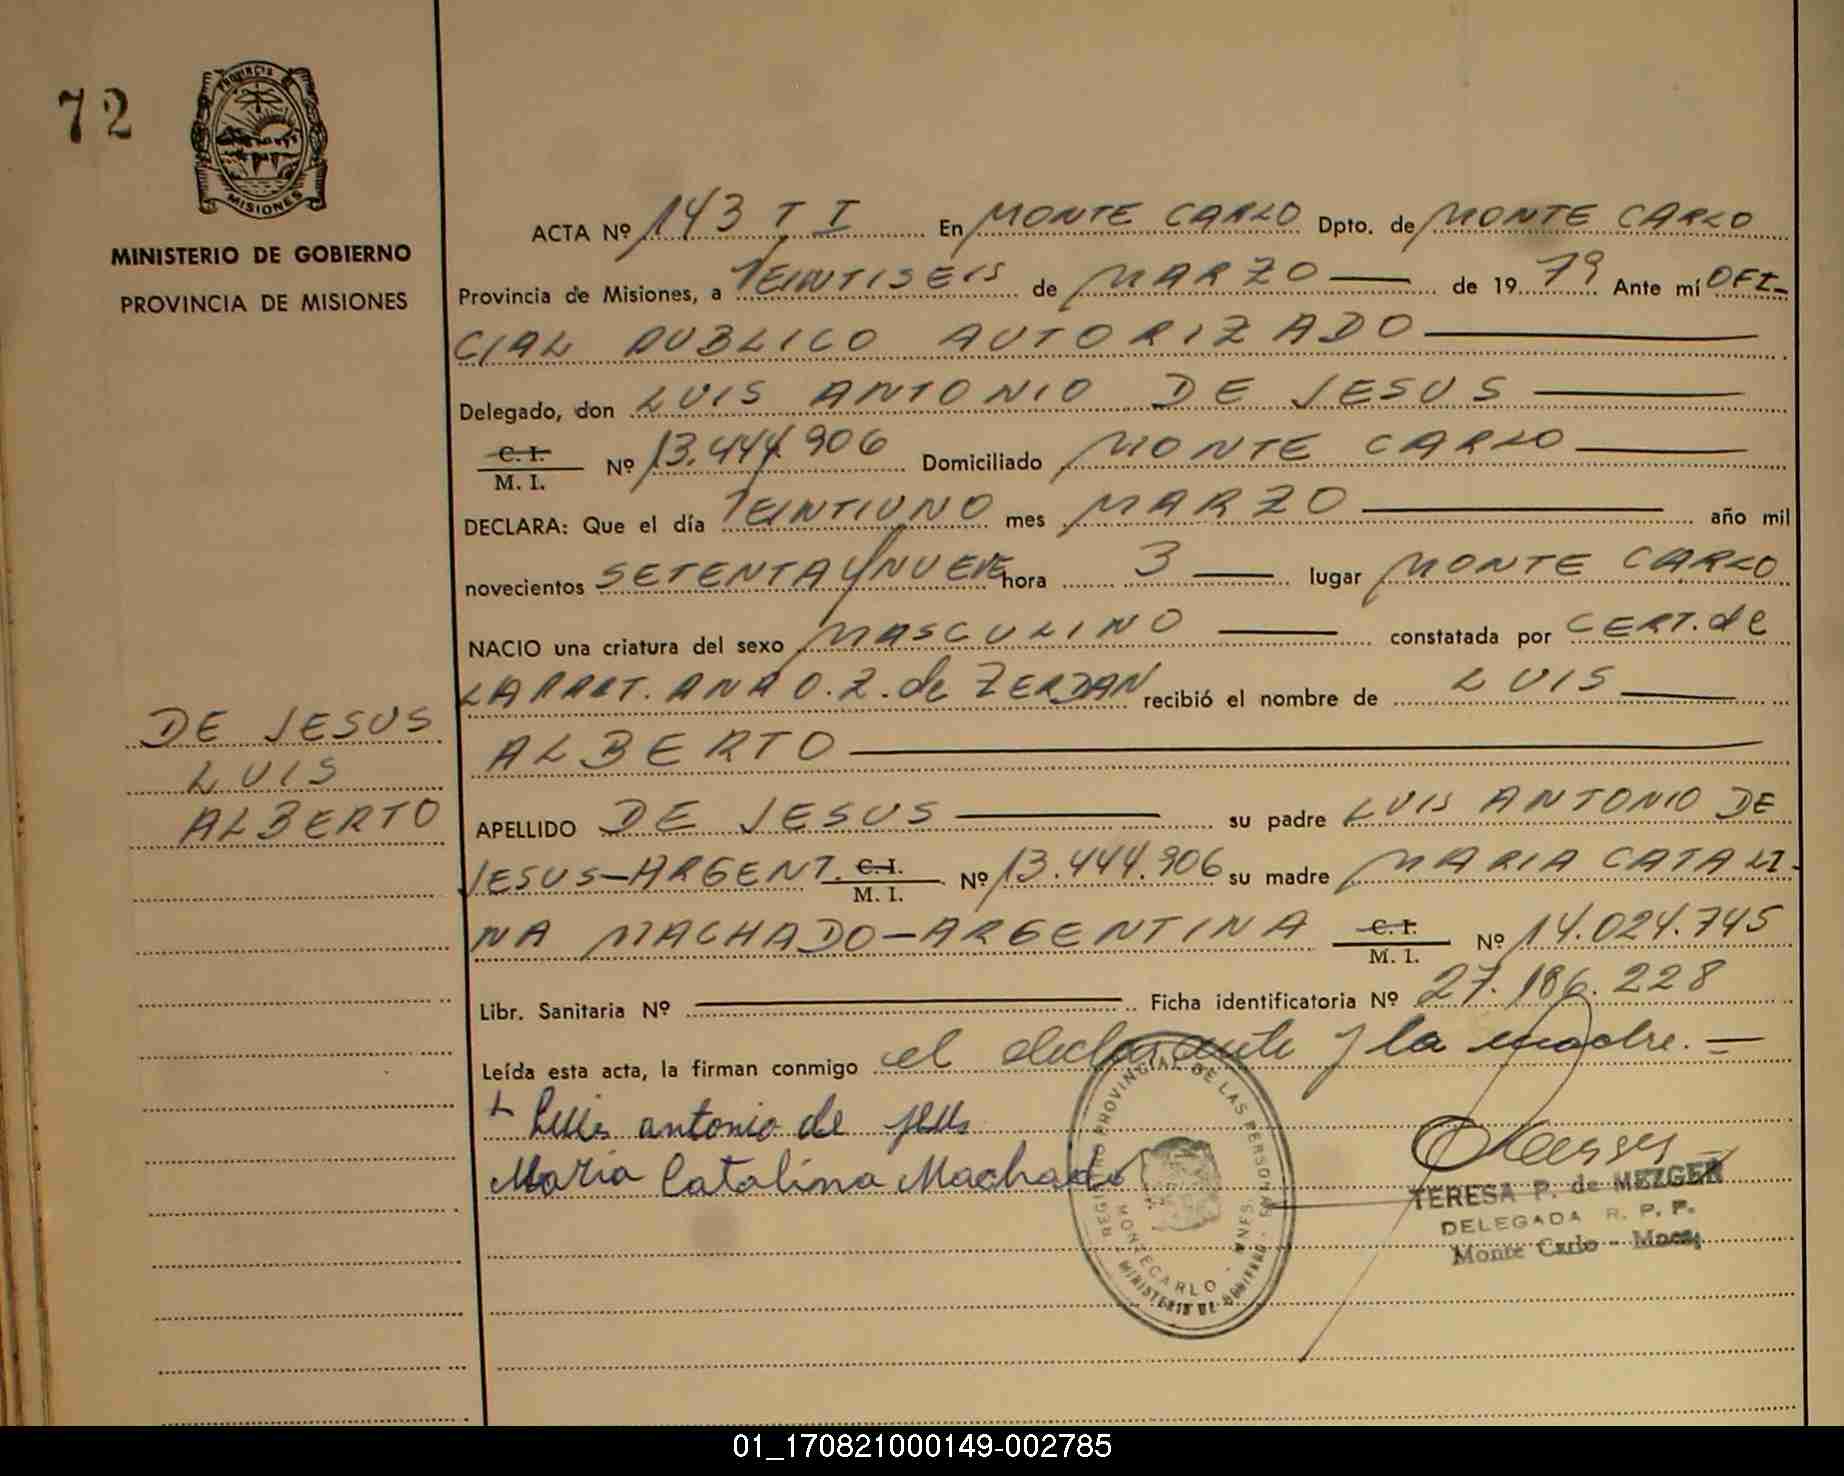 72
PROVINCIA DE
MISIONES
MINISTERIO DE GOBIERNO
PROVINCIA DE MISIONES
ACTA Nº 143 T I En MONTE CARLO Dpto. de MONTE CARLO
Provincia de Misiones, a VEINTISEIS de MARZO de 1979 Ante mí OFI-
CIAL PUBLICO AUTORIZADO
Delegado, don LUIS ANTONIO DE JESUS
C. I.
M. I. Nº 13.444.906 Domiciliado MONTE CARLO
DECLARA: Que el día VEINTIUNO mes MARZO año mil
novecientos SETENTA Y NUEVE hora 3 lugar MONTE CARLO
NACIO una criatura del sexo MASCULINO constatada por CERT. de
LA PART. ANA O. Z. de ZERDAN recibió el nombre de LUIS
ALBERTO
DE JESUS
LUIS
ALBERTO
APELLIDO DE JESUS su padre LUIS ANTONIO DE
JESUS-ARGENT. C. I. M. I. Nº 13.444.906 su madre MARIA CATALI-
NA MACHADO-ARGENTINA C. I. M. I. Nº 14.024.745
Libr. Sanitaria Nº Ficha identificatoria Nº 27.186.228
Leída esta acta, la firman conmigo el declarante y la madre.-
Luis antonio de jesus
Maria Catalina Machado
REGISTRO PROVINCIAL DE LAS PERSONAS
MONTECARLO - MNES.
MINISTERIO DE GOBIERNO
TERESA P. de MEZGER
DELEGADA R. P. P.
Monte Carlo -
01_170821000149-002785